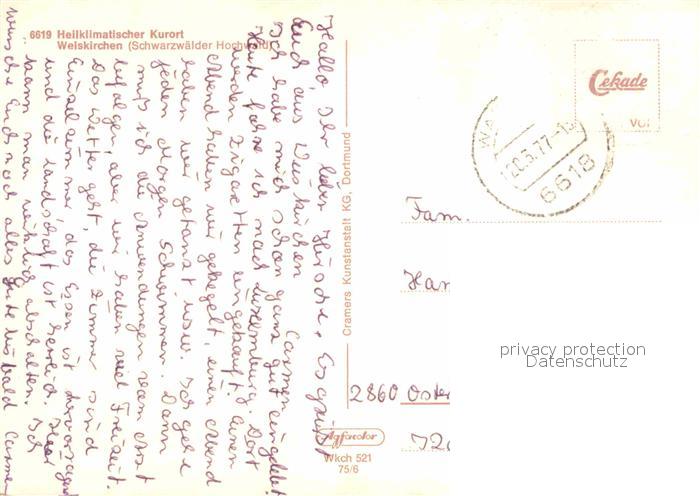 6619 Heilklimatischer Kurort
Weiskirchen (Schwarzwälder Hochwald)
Hallo, Ihr lieben Es grüßt
Euch aus Weiskirchen Carmen
Ich habe mich schon ganz gut eingelebt.
Heute fahre ich nach Luxemburg. Dort
werden Zigaretten eingekauft. Einen
Abend haben wir gekegelt, einen Abend
haben wir getanzt usw. Ich gehe
jeden Morgen Schwimmen. Dann
muß ich die Anwendungen vom Arzt
befolgen, aber wir haben viel Freizeit.
Das Wetter geht, die Zimmer sind
Einzelzimmer, das Essen ist hervorragend
und die Landschaft ist herrlich. Hier
kann man wirklich abschalten. Ich
wünsche Euch noch alles Gute bis bald Carmen
Cramers Kunstanstalt KG, Dortmund
Cekade
20.5.77-1
6618
Fam.
Han
2860 Oster
Agfacolor
Wkch 521
75/6
privacy protection
Datenschutz